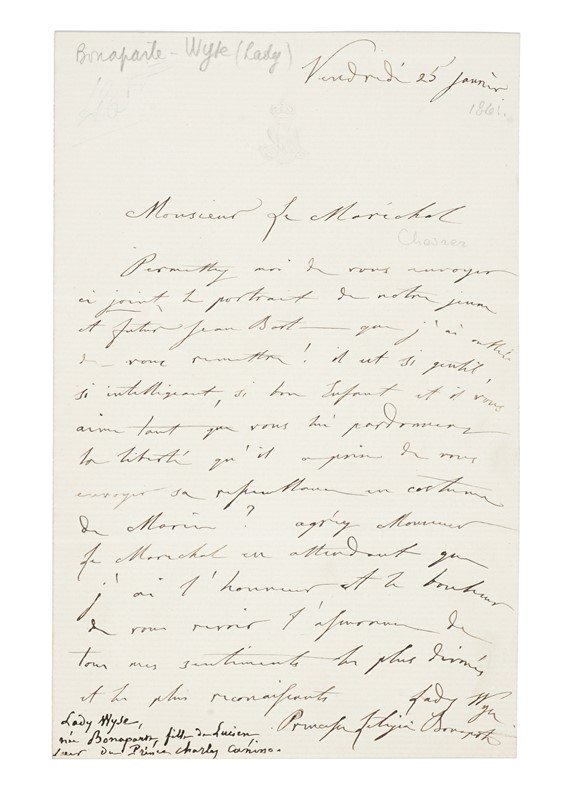 Bonaparte - Wyse (Lady)
Vendredi 25 janvier
1861.
Monsieur Le Maréchal
Permettez moi de vous envoyer
ci joint le portrait de notre jeune
et futur Jean Bart — que j'ai oublié
de vous remettre! il est si gentil
si intelligent, si bon Enfant et il vous
aime tant que vous lui pardonnerez
la liberté qu'il a prise de vous
envoyer sa ressemblance en costume
de Marin? agréez Monsieur
Le Maréchal en attendant que
j'ai l'honneur et le bonheur
de vous revoir l'assurance de
tous mes sentiments les plus
et les plus reconnaissants Lady Wyse
Princesse Letizia Bonaparte
Lady Wyse,
née Bonaparte, fille de Lucien
sœur du Prince Charles Canino.